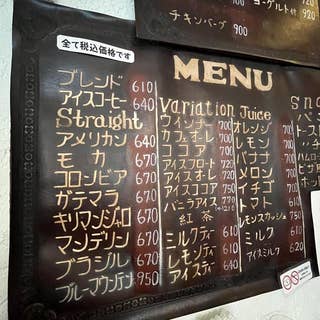 ヨーグルト付 920
チキンバーグ
900
920
全て税込価格です
MENU
ブレンド 610
アイスコーヒー 640
Straight
アメリカン 640
モカ 670
コロンビア 670
ガテマラ 670
キリマンジャロ 670
マンデリン 670
ブラジル 670
ブルーマウンテン 950
Variation
ウィンナー 700
カフェオーレ 700
ココア 700
アイスフロート 720
アイスオーレ 720
アイスココア 750
バニラアイス
紅茶
ミルクティー
レモンティ
アイスティ 640
Juice
オレンジ
レモン 700
バナナ 700
メロン 700
イチゴ 700
トマト 700
レモンスカッシュ 750
ミルク 610
アイスミルク 620